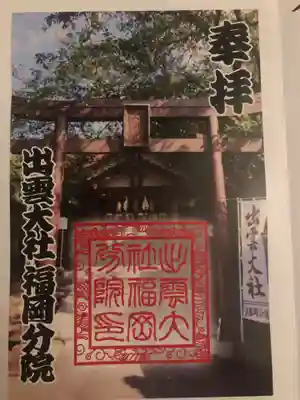 奉拝
出雲大社福岡分院
出雲大
社福岡
分院印
出雲大社